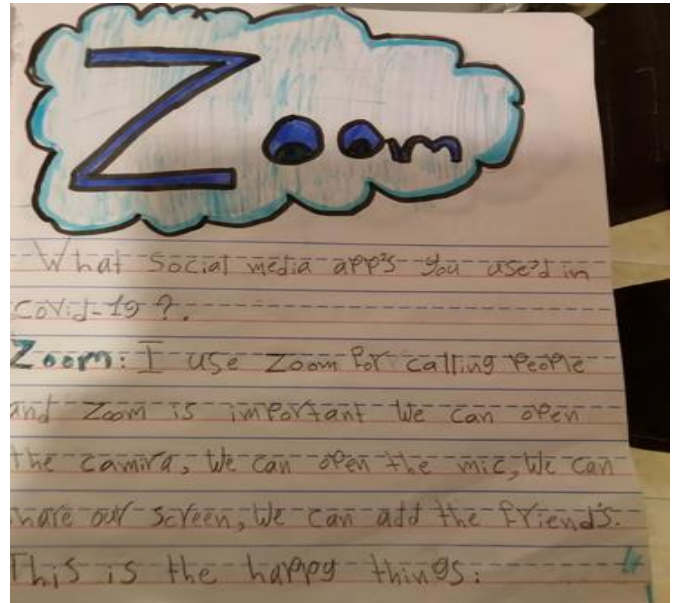 Zoom
What social media app's you use'd in
Covid-19 ?.
Zoom: I use Zoom for calling People
and Zoom is important We can open
the camira, We can open the mic, We can
hare our screen, We can add the friend's.
This is the happy things: